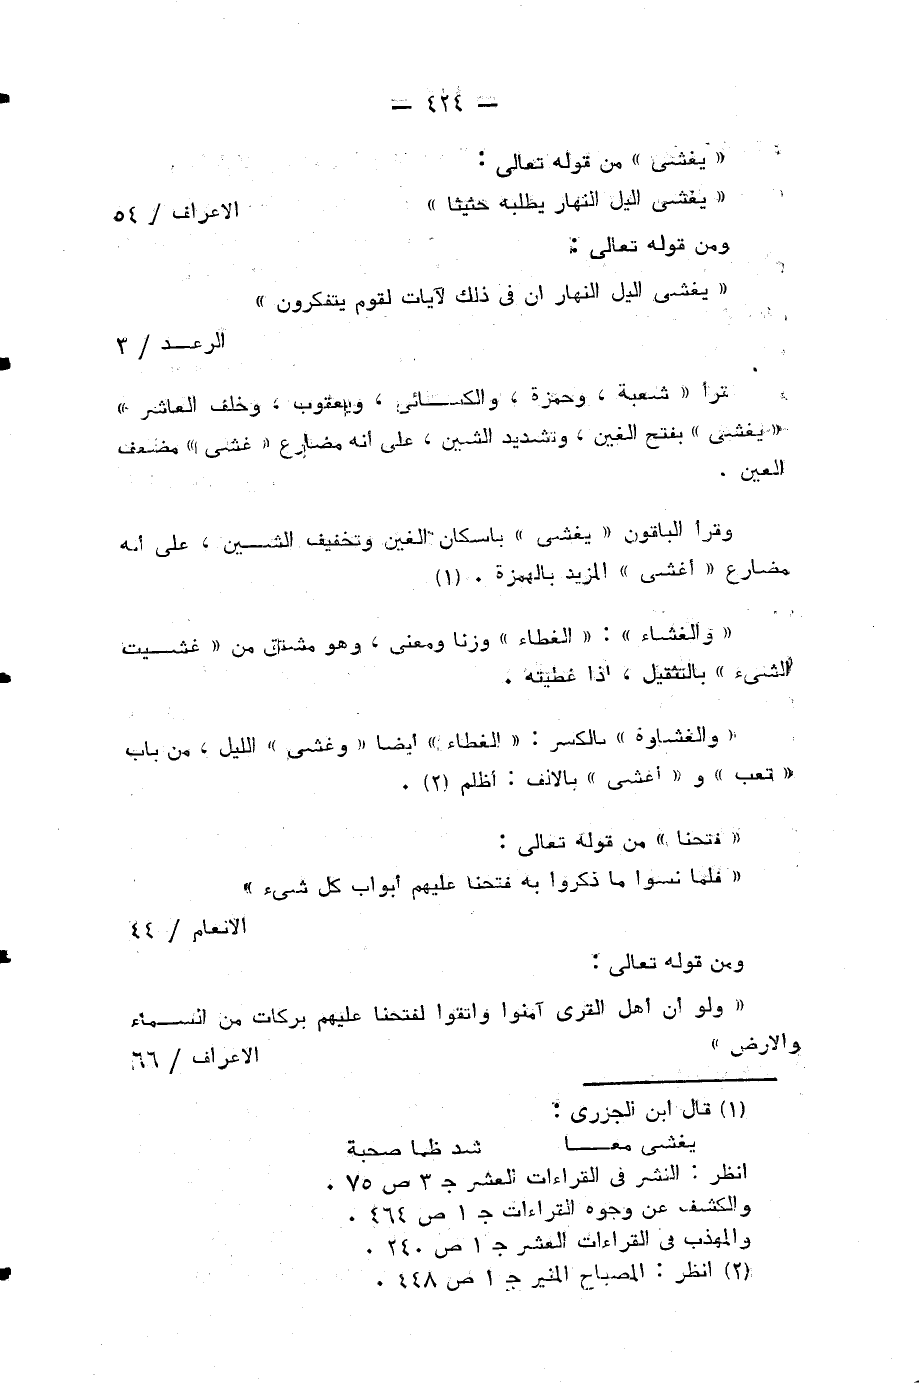 — ٤٢٤ —
« يغشى » من قوله تعالى :
« يغشى اليل النهار يطلبه حثيثا » الاعراف / ٥٤
ومن قوله تعالى :
« يغشى اليل النهار ان فى ذلك لآيات لقوم يتفكرون »
الرعد / ٣
قرأ « شعبة ، وحمزة ، والكسائى ، ويعقوب ، وخلف العاشر »
« يغشى » بفتح الغين ، وتشديد الشين ، على أنه مضارع « غشى » مضعف
العين .
وقرأ الباقون « يغشى » باسكان الغين وتخفيف الشين ، على أنه
مضارع « أغشى » المزيد بالهمزة . (١)
« والغشاء » : « الغطاء » وزنا ومعنى ، وهو مشتق من « غشيت
الشىء » بالتثقيل ، اذا غطيته .
« والغشاوة » بالكسر : « الغطاء » أيضا « وغشى » الليل ، من باب
« تعب » و « أغشى » بالالف : أظلم (٢) .
« فتحنا » من قوله تعالى :
« فلما نسوا ما ذكروا به فتحنا عليهم أبواب كل شىء »
الانعام / ٤٤
ومن قوله تعالى :
« ولو أن أهل القرى آمنوا واتقوا لفتحنا عليهم بركات من السماء
والارض » الاعراف / ٦٦
(١) قال ابن الجزرى :
يغشى معا شد ظما صحبة
انظر : النشر فى القراءات العشر ج ٣ ص ٧٥ .
والكشف عن وجوه القراءات ج ١ ص ٤٦٤ .
والمهذب فى القراءات العشر ج ١ ص ٢٤٠ .
(٢) انظر : المصباح المنير ج ١ ص ٤٤٨ .